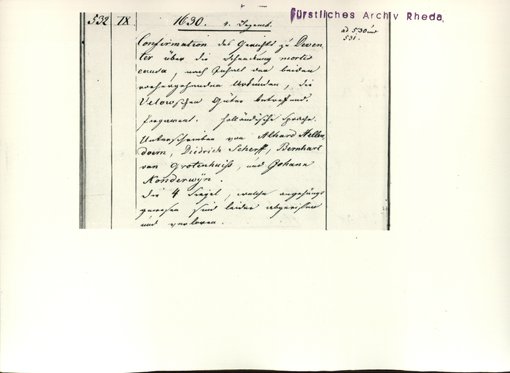 Fürstliches Archiv Rheda
532 IX. 1630. 2. Decemb. ad 530 und
531.
Confirmation des Gerichts zu Deven-
ter über die Schenkung mortis
causa, nach Inhalt der beiden
vorhergehenden Urkunden, die
Velowschen Güter betreffend.
Pergament. Holländische Sprache.
Unterschrieben von Alhard Mellen
Diedrich Scherff, Bernhart
von Grotenhuiß, und Johann
Nonderwÿn.
Die 4 Siegel, welche angehängt
gewesen sind leider abgerissen
und verloren.